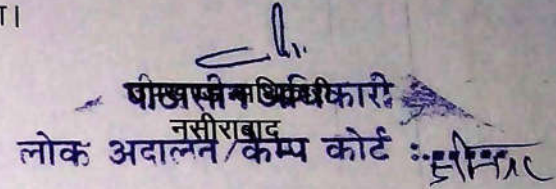 पीठासीन अधिकारी
नसीराबाद
लोक अदालत/कैम्प कोर्ट :